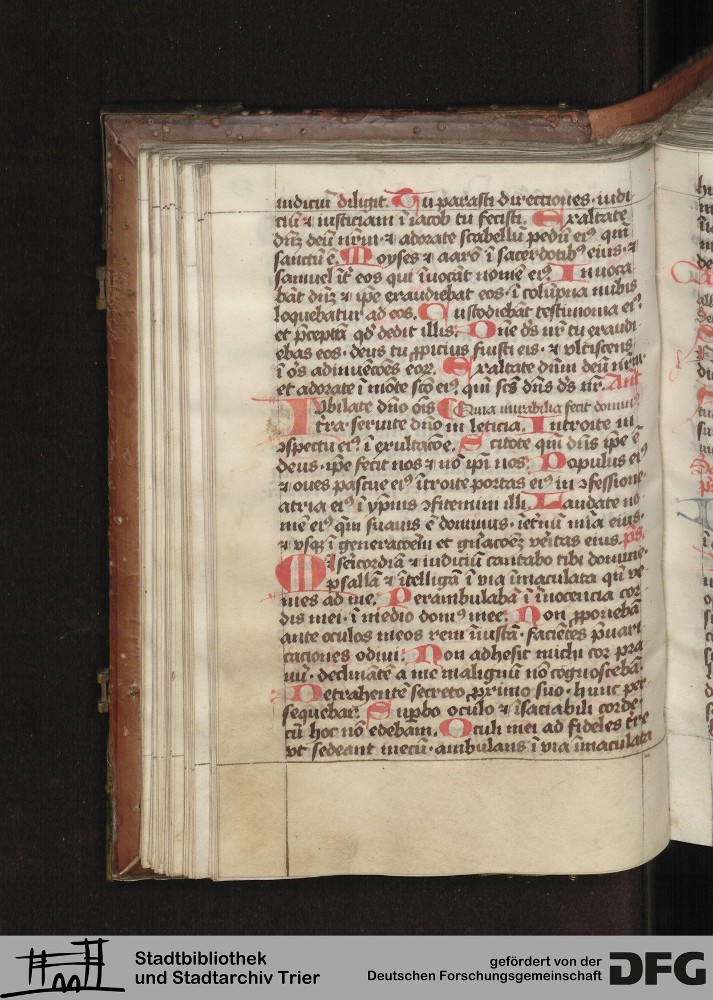 iudiciū diligit. Tu parasti directiones· iudi
ciū ⁊ iusticiam ī iacob tu fecisti. Exaltate
dn̄m deū nr̄m· ⁊ adorate scabellū pedū eiꝰ qm̄
sanctū ē. Moyses ⁊ aarō ī sacerdotibꝰ eius· ⁊
samuel īt̄ eos qui īuocāt nomē eiꝰ Inuoca
bāt dn̄m ⁊ ip̄e exaudiebat eos· ī colūpna nubis
loquebatur ad eos. Custodiebāt testimonia eiꝰ
et p̄ceptū qd̓ dedit illis. Dn̄e ds̄ nr̄ tu exaudi
ebas eos· deus tu ꝓpicius fuisti eis· ⁊ vlciscens
ī os̄ adinuēcōes eoꝝ. Exaltate dn̄m deū nr̄m·
et adorate ī mōte sc̄o eiꝰ, qm̄ scs̄ dn̄s ds̄ nr̄. Ant̄
Iubilate dn̄o ōis Quia mirabilia fecit dominꝰ
t̄ra· seruite dn̄o in leticia. Introite in
ↄspectu eiꝰ ī exultacōe. Scitote qm̄ dn̄s ip̄e ē
deus· ip̄e fecit nos ⁊ nō ip̄i nos. Populus eiꝰ
⁊ oues pascue eiꝰ ītroite portas eiꝰ in ↄfessione
atria eiꝰ ī ympnis ↄfitemini illi. Laudate no
mē eiꝰ qm̄ suauis ē dominus· īet̄nū mīa eius·
⁊ vsqꝫ ī generacōem et gn̄acōeꝫ veritas eius. ps̄
Misericordiā ⁊ iudiciū cantabo tibi domine·
psallā ⁊ ītelligā ī via īmaculata qn̄ ve
nies ad me. Perambulabā ī īnocencia cor
dis mei· ī medio domꝰ mee. Non ꝓponebā
ante oculos meos rem īiustā· faciētes p̄uari
caciones odiui. Non adhesit michi cor pra
uū· declinātē a me malignū nō cognoscebā·
Detrahentē secreto ꝓximo suo· hunc per
sequebar. Supbo oculo ⁊ īsaciabili corde
cū hoc nō edebam. Oculi mei ad fideles t̄re
vt sedeant mecū· ambulans ī via īmaculata
Stadtbibliothek
und Stadtarchiv Trier
gefördert von der
Deutschen Forschungsgemeinschaft
DFG